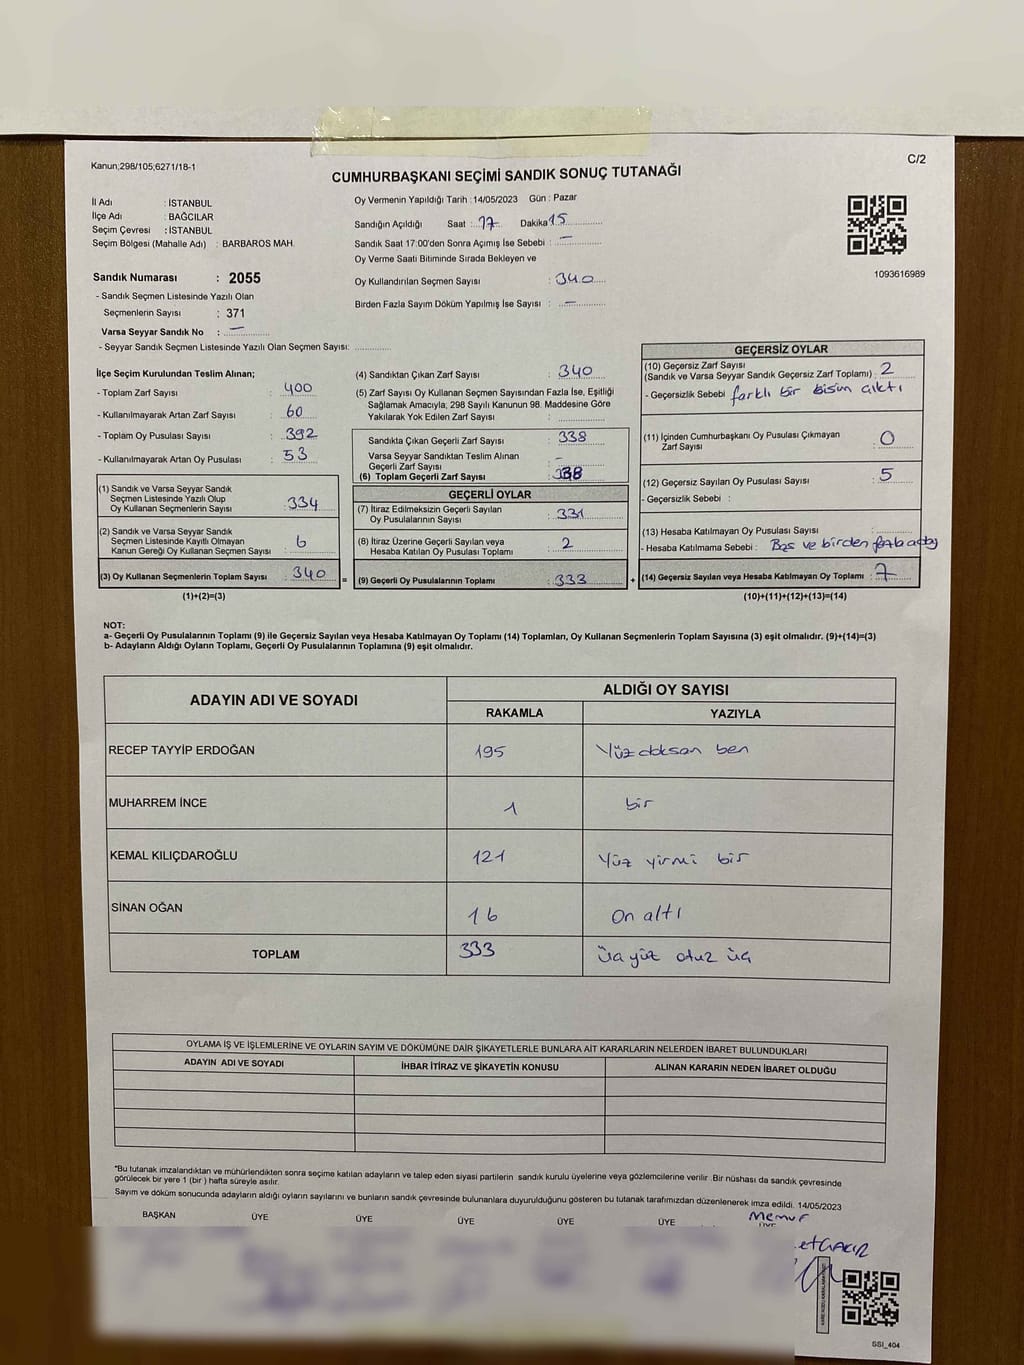 Kanun;298/105;6271/18-1
C/2
CUMHURBAŞKANI SEÇİMİ SANDIK SONUÇ TUTANAĞI
İl Adı : İSTANBUL
İlçe Adı : BAĞCILAR
Seçim Çevresi : İSTANBUL
Seçim Bölgesi (Mahalle Adı) : BARBAROS MAH.
Sandık Numarası : 2055
- Sandık Seçmen Listesinde Yazılı Olan
Seçmenlerin Sayısı : 371
Varsa Seyyar Sandık No : —
- Seyyar Sandık Seçmen Listesinde Yazılı Olan Seçmen Sayısı:
Oy Vermenin Yapıldığı Tarih :14/05/2023 Gün : Pazar
Sandığın Açıldığı Saat : 17 Dakika 15
Sandık Saat 17:00'den Sonra Açımış İse Sebebi : —
Oy Verme Saati Bitiminde Sırada Bekleyen ve
Oy Kullandırılan Seçmen Sayısı : 340
Birden Fazla Sayım Döküm Yapılmış İse Sayısı : —
1093616989
İlçe Seçim Kurulundan Teslim Alınan;
- Toplam Zarf Sayısı : 400
- Kullanılmayarak Artan Zarf Sayısı : 60
- Toplam Oy Pusulası Sayısı : 392
- Kullanılmayarak Artan Oy Pusulası : 53
(1) Sandık ve Varsa Seyyar Sandık
Seçmen Listesinde Yazılı Olup
Oy Kullanan Seçmenlerin Sayısı : 334
(2) Sandık ve Varsa Seyyar Sandık
Seçmen Listesinde Kayıtlı Olmayan
Kanun Gereği Oy Kullanan Seçmen Sayısı : 6
(3) Oy Kullanan Seçmenlerin Toplam Sayısı : 340
(1)+(2)=(3)
(4) Sandıktan Çıkan Zarf Sayısı : 340
(5) Zarf Sayısı Oy Kullanan Seçmen Sayısından Fazla İse, Eşitliği
Sağlamak Amacıyla, 298 Sayılı Kanunun 98. Maddesine Göre
Yakılarak Yok Edilen Zarf Sayısı :
Sandıkta Çıkan Geçerli Zarf Sayısı : 338
Varsa Seyyar Sandıktan Teslim Alınan
Geçerli Zarf Sayısı : –
(6) Toplam Geçerli Zarf Sayısı : 338
GEÇERLİ OYLAR
(7) İtiraz Edilmeksizin Geçerli Sayılan
Oy Pusulalarının Sayısı : 331
(8) İtiraz Üzerine Geçerli Sayılan veya
Hesaba Katılan Oy Pusulası Toplamı : 2
= (9) Geçerli Oy Pusulalarının Toplamı : 333
GEÇERSİZ OYLAR
(10) Geçersiz Zarf Sayısı
(Sandık ve Varsa Seyyar Sandık Geçersiz Zarf Toplamı) : 2
- Geçersizlik Sebebi farklı bir
(11) İçinden Cumhurbaşkanı Oy Pusulası Çıkmayan
Zarf Sayısı : 0
(12) Geçersiz Sayılan Oy Pusulası Sayısı : 5
- Geçersizlik Sebebi :
(13) Hesaba Katılmayan Oy Pusulası Sayısı :
- Hesaba Katılmama Sebebi : Boş ve birden fazla
+ (14) Geçersiz Sayılan veya Hesaba Katılmayan Oy Toplamı : 7
(10)+(11)+(12)+(13)=(14)
NOT:
a- Geçerli Oy Pusulalarının Toplamı (9) ile Geçersiz Sayılan veya Hesaba Katılmayan Oy Toplamı (14) Toplamları, Oy Kullanan Seçmenlerin Toplam Sayısına (3) eşit olmalıdır. (9)+(14)=(3)
b- Adayların Aldığı Oyların Toplamı, Geçerli Oy Pusulalarının Toplamına (9) eşit olmalıdır.
ADAYIN ADI VE SOYADI ALDIĞI OY SAYISI
RAKAMLA YAZIYLA
RECEP TAYYİP ERDOĞAN 195 Yüz doksan beş
MUHARREM İNCE 1 bir
KEMAL KILIÇDAROĞLU 121 Yüz yirmi bir
SİNAN OĞAN 16 On altı
TOPLAM 333 üç yüz otuz üç
OYLAMA İŞ VE İŞLEMLERİNE VE OYLARIN SAYIM VE DÖKÜMÜNE DAİR ŞİKAYETLERLE BUNLARA AİT KARARLARIN NELERDEN İBARET BULUNDUKLARI
ADAYIN ADI VE SOYADI İHBAR İTİRAZ VE ŞİKAYETİN KONUSU ALINAN KARARIN NEDEN İBARET OLDUĞU
*Bu tutanak imzalandıktan ve mühürlendikten sonra seçime katılan adayların ve talep eden siyasi partilerin sandık kurulu üyelerine veya gözlemcilerine verilir. Bir nüshası da sandık çevresinde
görülecek bir yere 1 (bir ) hafta süreyle asılır.
Sayım ve döküm sonucunda adayların aldığı oyların sayılarını ve bunların sandık çevresinde bulunanlara duyurulduğunu gösteren bu tutanak tarafımızdan düzenlenerek imza edildi. 14/05/2023
BAŞKAN ÜYE ÜYE ÜYE ÜYE ÜYE Memur
SSI_404